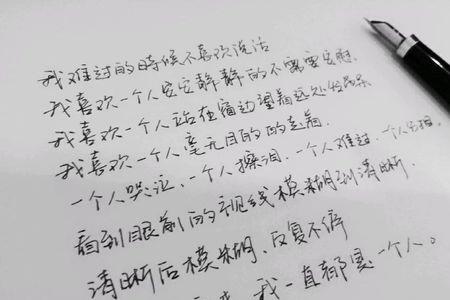 我难过的時候不喜欢说话
我喜欢一个人安安静静的不需要安慰.
我喜欢一个人站在窗边望着远处
我喜欢一个人毫无目的的走着.
一个人哭泣、一个人擦泪、一个人难过、一个人
看到眼前的视线模糊到清晰.
清晰后模糊.反复不停
我一直都是一个人。